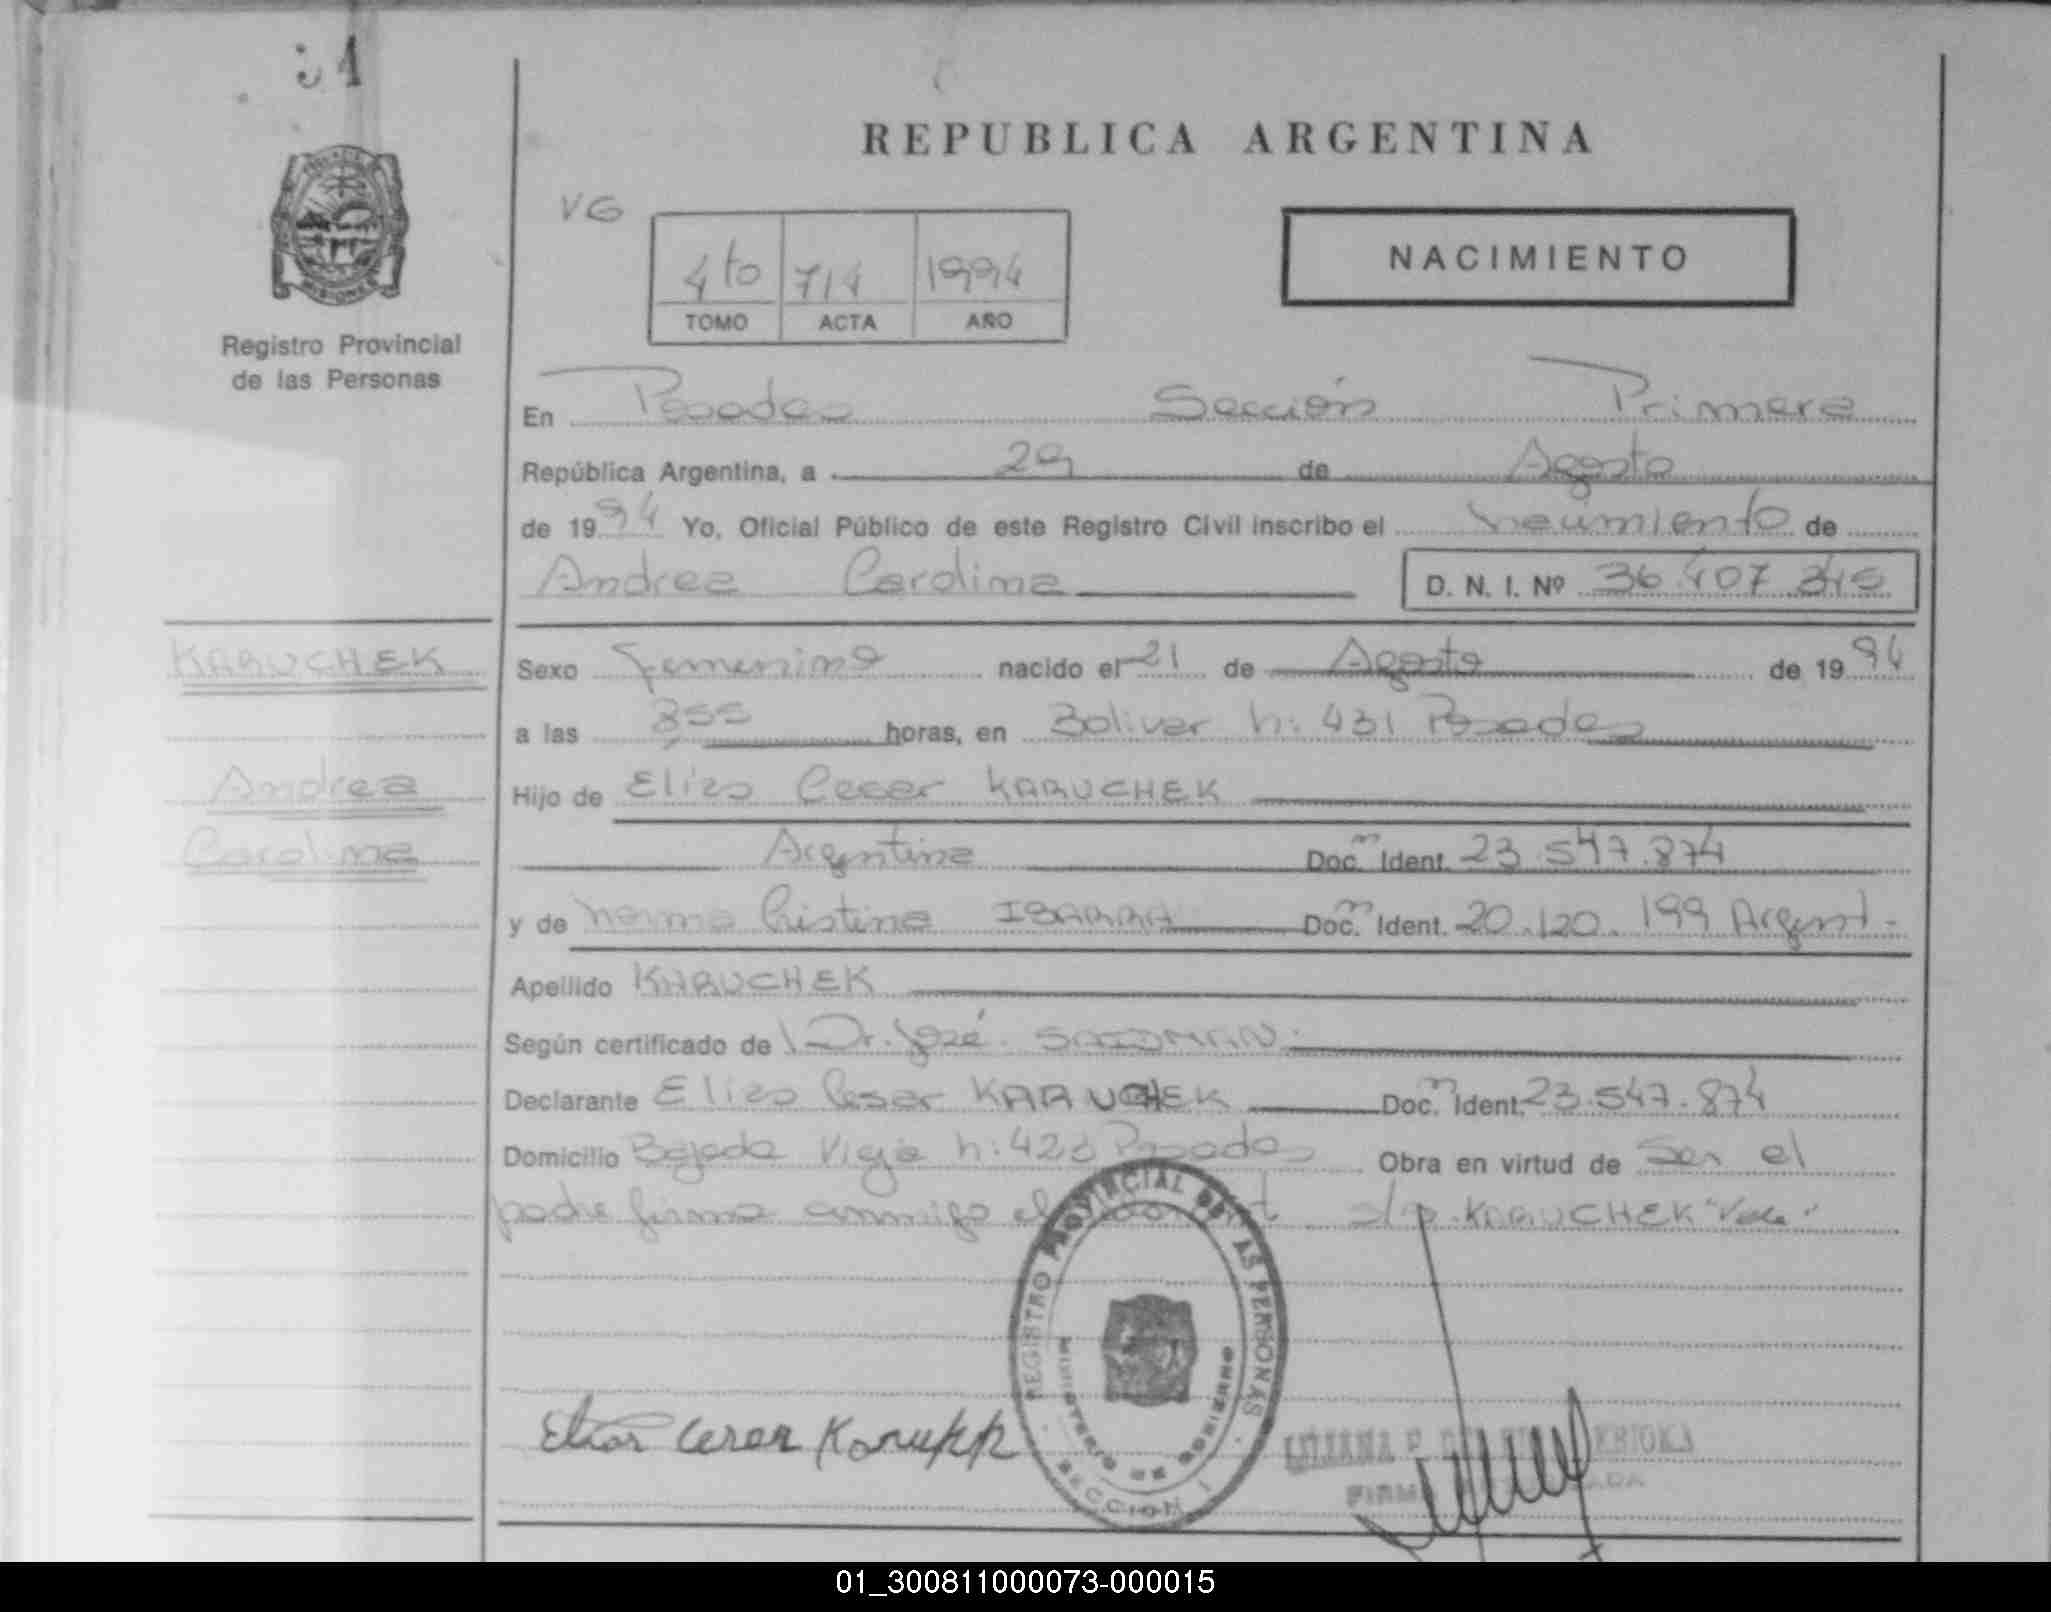 REPUBLICA ARGENTINA
VG
NACIMIENTO
4to 714 1994
TOMO ACTA AÑO
MISIONES
Registro Provincial
de las Personas
En Posadas Sección Primera
República Argentina, a 29 de Agosto
de 1994 Yo, Oficial Público de este Registro Civil inscribo el Nacimiento de
Andrea Carolina D. N. I. Nº 36.407.345
KARUCHEK
Andrea
Carolina
Sexo femenino nacido el 21 de Agosto de 1994
a las 855 horas, en Bolivar N: 431 Posadas
Hijo de Elias Cesar KARUCHEK
Argentina Doc. Ident. 23.547.874
y de Norma Cristina IBARRA Doc. Ident. 20.120.199 Argent.
Apellido KARUCHEK
Según certificado de Dr. José SAIDMAN
Declarante Elias Cesar KARUCHEK Doc. Ident. 23.547.874
Domicilio Bajada Vieja N: Posadas Obra en virtud de Ser el
padre firma conmigo el KARUCHEK "Vale"
REGISTRO PROVINCIAL DE LAS PERSONAS
MINISTERIO DE GOBIERNO
SECCION 1
Elias Cesar
01_300811000073-000015